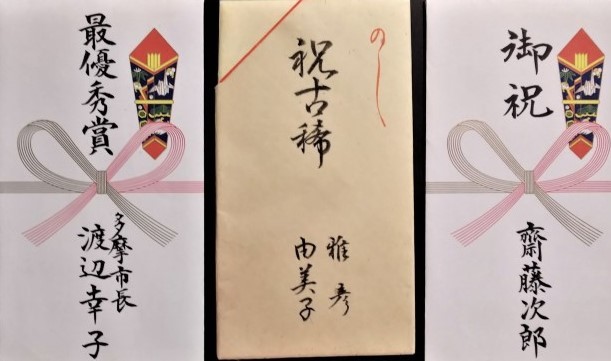 最優秀賞
多摩市長
渡辺幸子
のし
祝古稀
雅彦
由美子
御祝
齋藤次郎